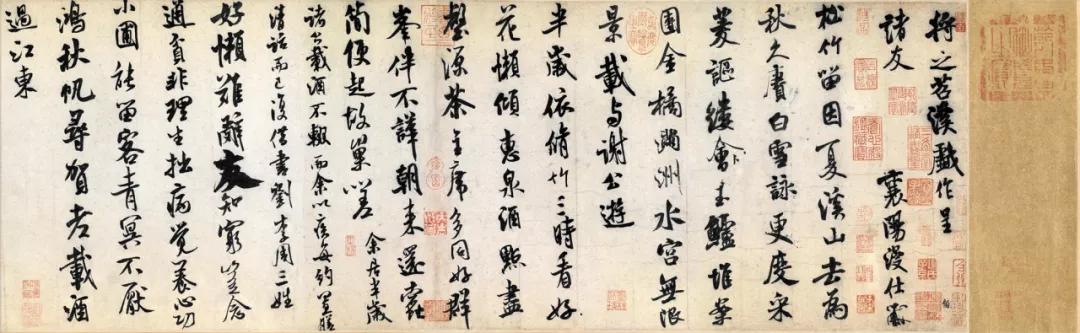 將之苕溪戲作呈
諸友 襄陽漫仕黻
松竹留因夏溪山去為
秋久賡白雪詠更度采
菱謳縷會玉鱸堆案
團金橘滿洲水宮無限
景載与謝公遊
半歲依脩竹三時看好
花懶傾惠泉酒點盡
壑源茶主席多同好群
峯伴不譁朝来還蠹
簡便起故巢嗟 余居半歲
諸公載酒不輟而余以疾每約置膳
清話而已復借書劉李周三姓
好懶難辭友知窮豈念
通貧非理生拙病覺養心功
小圃能留客青冥不厭
鴻秋帆尋賀老載酒
過江東